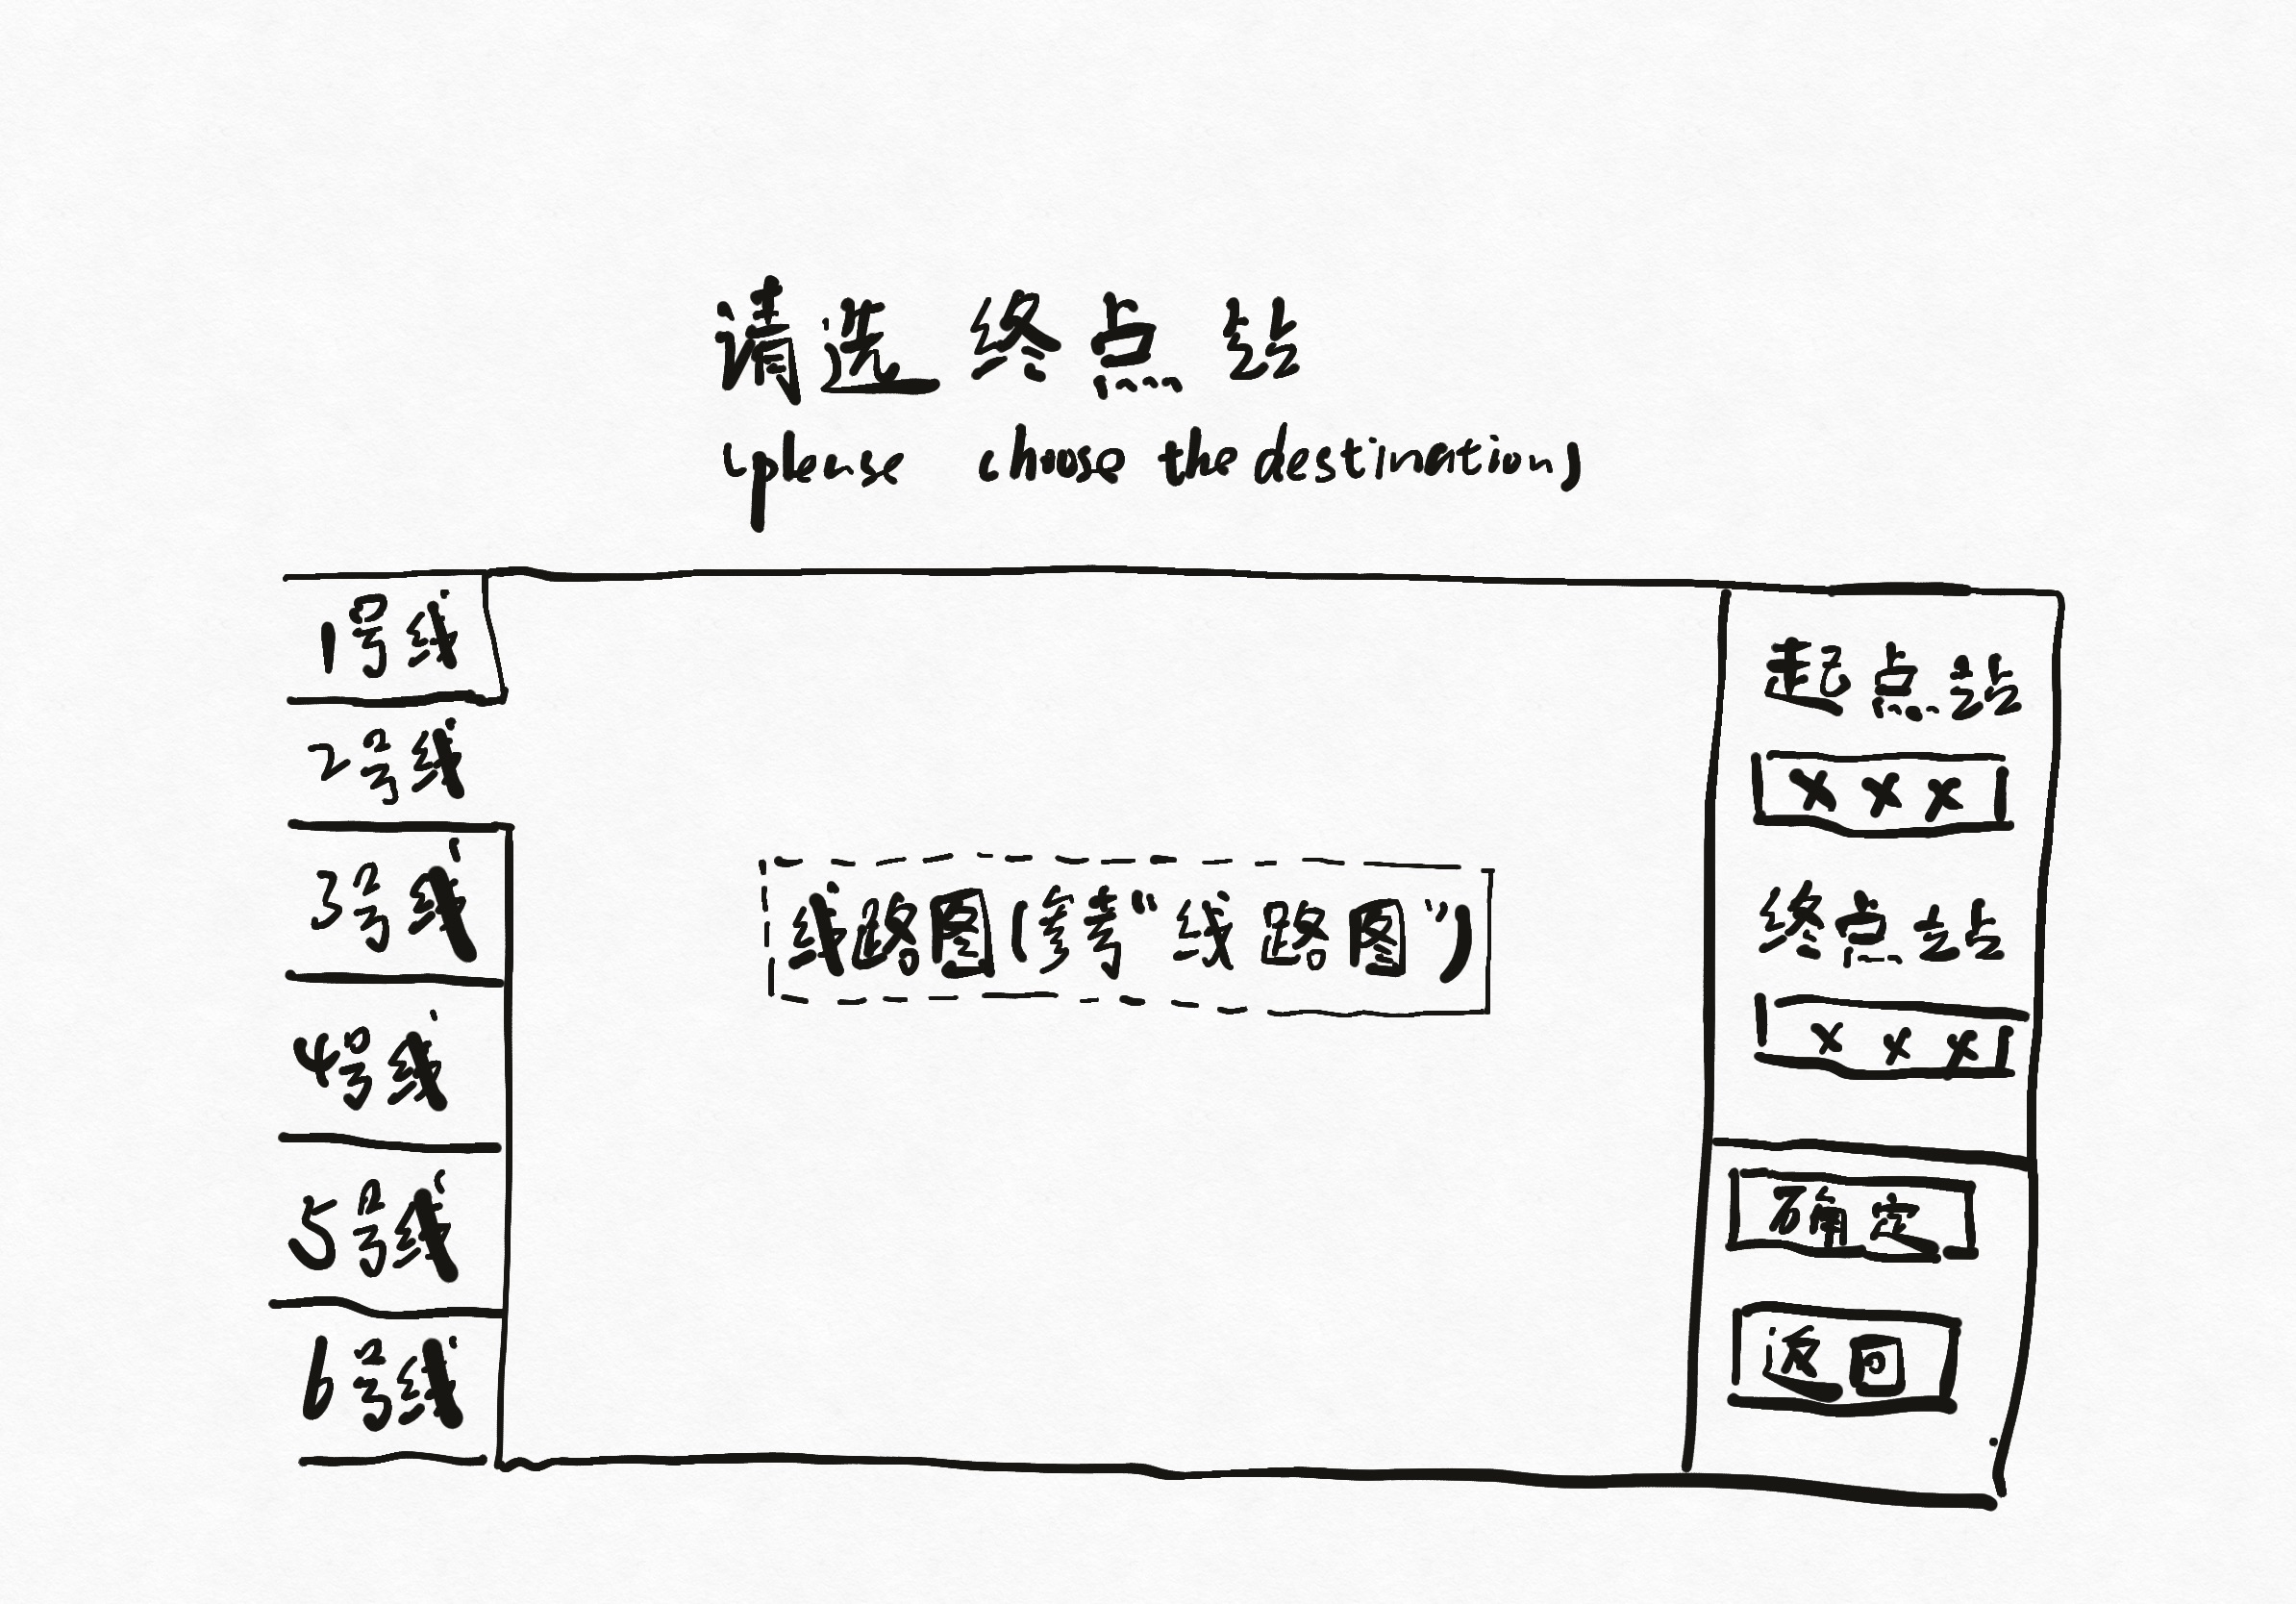 请选终点站
(please choose the destination)
1号线
2号线
3号线
4号线
5号线
6号线
线路图(参考“线路图”)
起点站
×××
终点站
×××
确定
返回